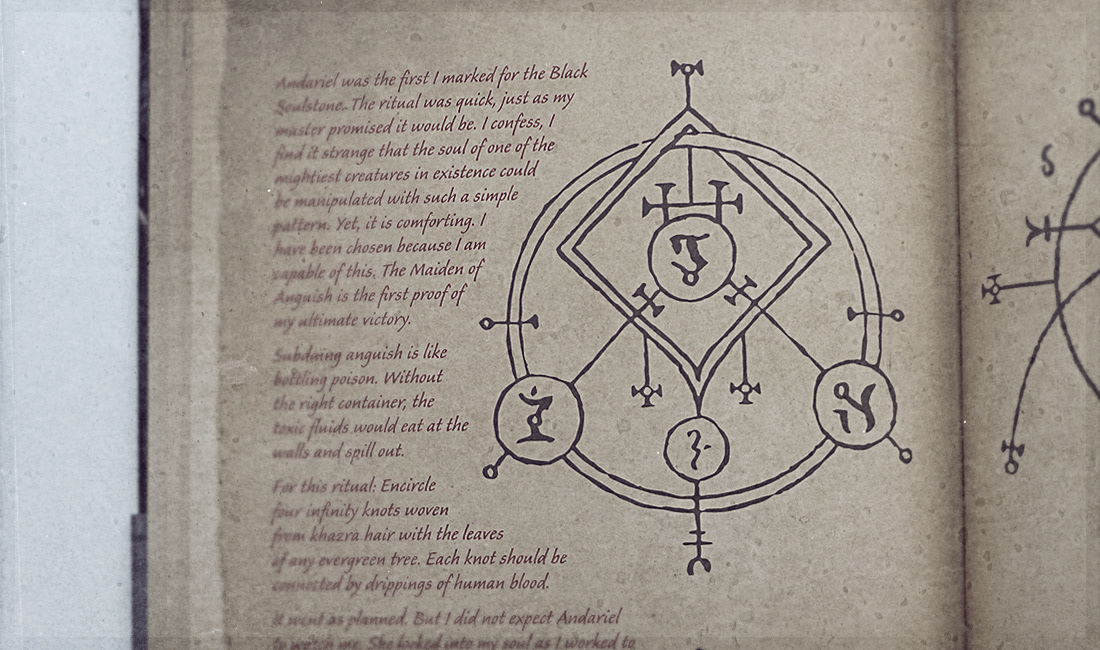 Andariel was the first I marked for the Black
Soulstone. The ritual was quick, just as my
master promised it would be. I confess, I
find it strange that the soul of one of the
mightiest creatures in existence could
be manipulated with such a simple
pattern. Yet, it is comforting. I
have been chosen because I am
capable of this. The Maiden of
Anguish is the first proof of
my ultimate victory.
Subduing anguish is like
bottling poison. Without
the right container, the
toxic fluids would eat at the
walls and spill out.
For this ritual: Encircle
four infinity knots woven
from khazra hair with the leaves
of any evergreen tree. Each knot should be
connected by drippings of human blood.
It went as planned. But I did not expect Andariel
to watch me. She looked into my soul as I worked to
S